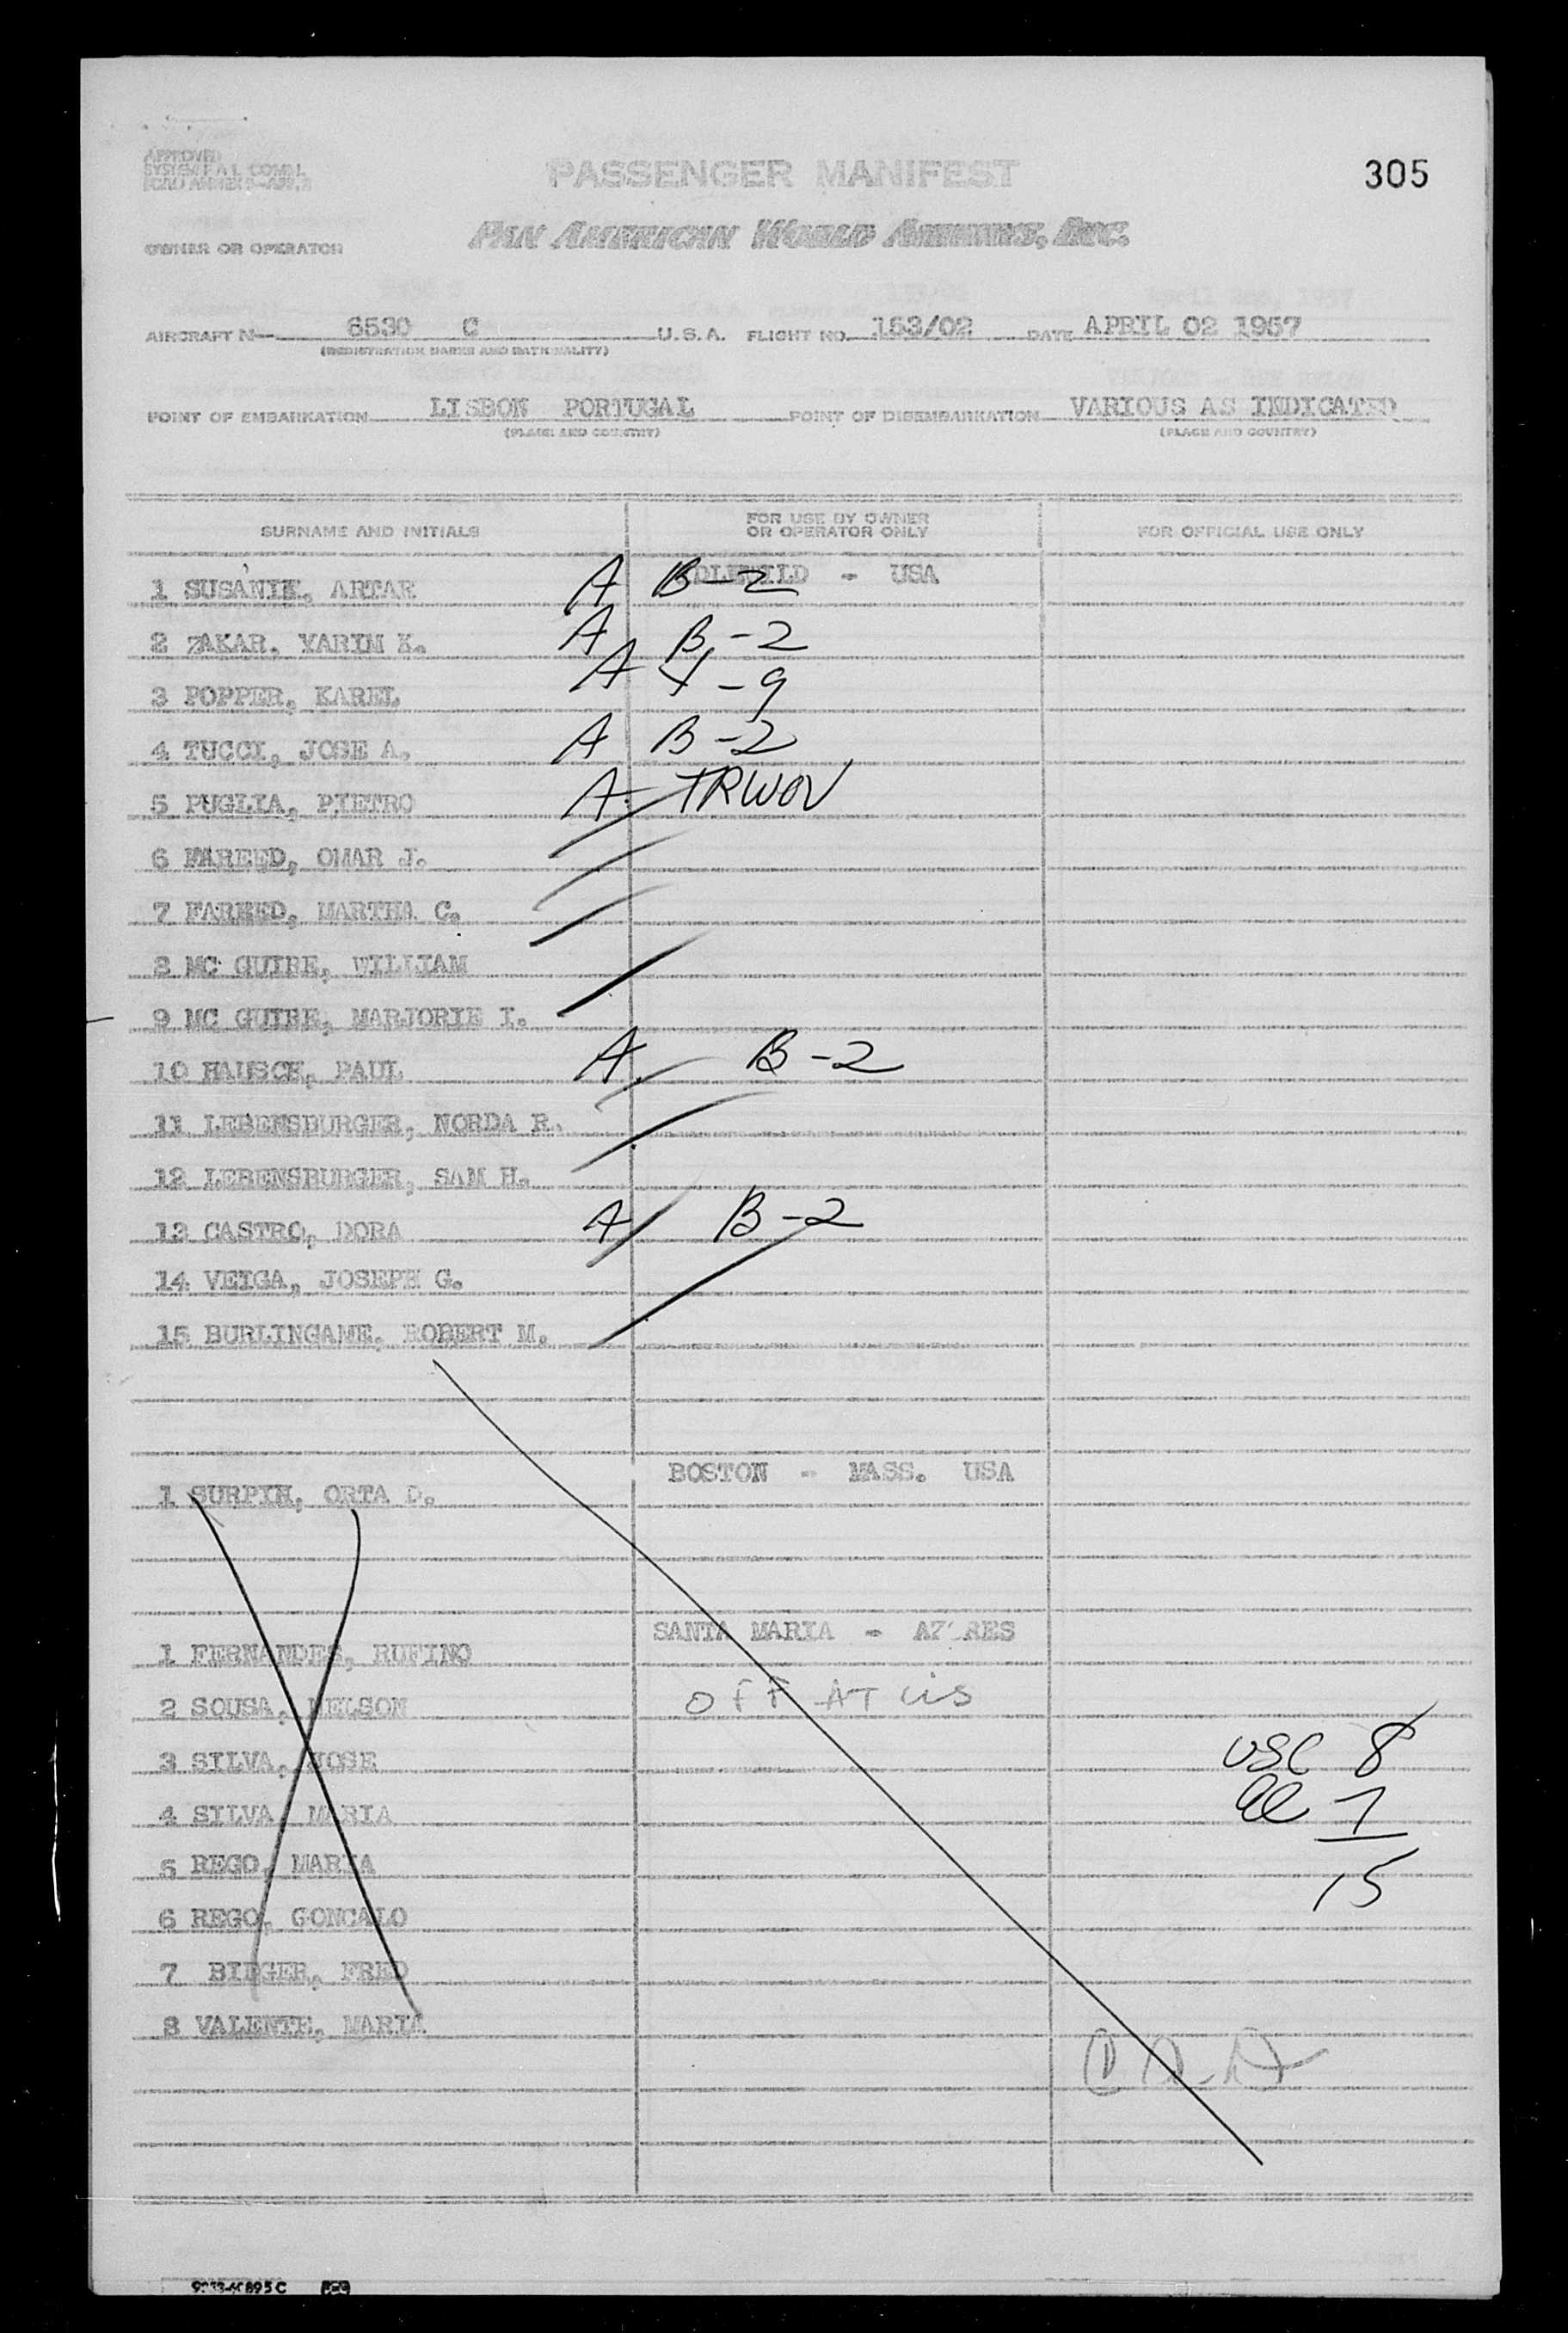 APPROVED
305
PASSENGER MANIFEST
PAN AMERICAN WORLD AIRWAYS, INC.
OWNER OR OPERATOR
AIRCRAFT N 6530 C U.S.A. FLIGHT NO. 153/02 DATE APRIL 02 1957
(REGISTRATION MARKS AND NATIONALITY)
POINT OF EMBARKATION LISBON PORTUGAL POINT OF DISEMBARKATION VARIOUS AS INDICATED
(PLACE AND COUNTRY) (PLACE AND COUNTRY)
SURNAME AND INITIALS FOR USE BY OWNER OR OPERATOR ONLY FOR OFFICIAL USE ONLY
IDLEWILD - USA
1 SUSANIE, ARTAR A B-2
2 ZAKAR, YARIM K. A B-2
3 POPPER, KAREL A -9
4 TUCCI, JOSE A. A B-2
5 PUGLIA, PIETRO A TRWOV
6 FAREED, OMAR J.
7 FAREED, MARTHA C.
8 MC GUIRE, WILLIAM
9 MC GUIRE, MARJORIE I.
10 HAUSCH, PAUL A B-2
11 LEBENSBURGER, NORDA R.
12 LEBENSBURGER, SAM H.
13 CASTRO, DORA A B-2
14 VEIGA, JOSEPH G.
15 BURLINGAME, ROBERT M.
BOSTON - MASS. USA
1 SURPIN, ORTA D.
SANTA MARIA - AZORES
1 FERNANDES, RUFINO
2 SOUSA, NELSON OFF AT LIS
3 SILVA, JOSE USC 8
4 SILVA, MARIA 7
5 REGO, MARIA 15
6 REGO, GONCALO
7 BIEGER, FRED
8 VALENTE, MARIA